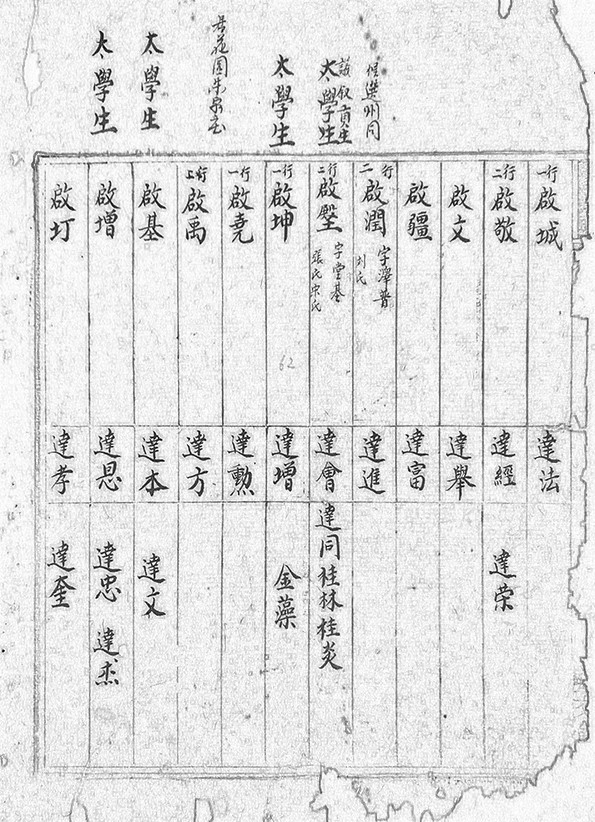 一行
啟城
達法
二行
啟敬
達經
達荣
啟文
達舉
啟疆
達富
選州同
二行
啟潤
字澤普
刘氏
達進
議叙貢生
太學生
二行
啟壂
字堂基
張氏宋氏
達會
達同桂林桂炎
太學生
一行
啟坤
62
達增
金藻
花園
一行
啟堯
達勲
行
啟禹
達方
太學生
啟基
達本
達文
太學生
啟增
達恩
達忠 達杰
啟圢
達孝
達奎